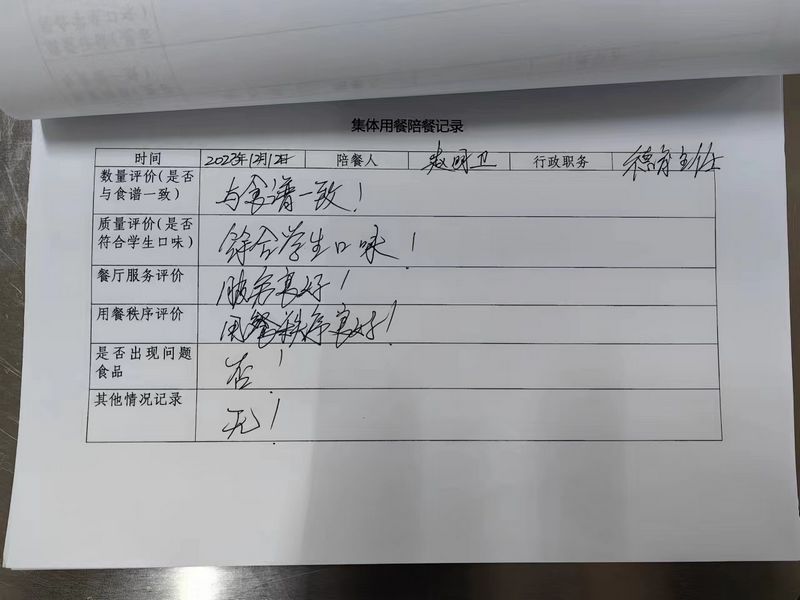 集体用餐陪餐记录
时间 2023年12月12日 陪餐人 赵明卫 行政职务 德育主任
数量评价(是否
与食谱一致) 与食谱一致！
质量评价(是否
符合学生口味) 符合学生口味！
餐厅服务评价 服务良好！
用餐秩序评价 用餐秩序良好！
是否出现问题
食品 否！
其他情况记录 无！